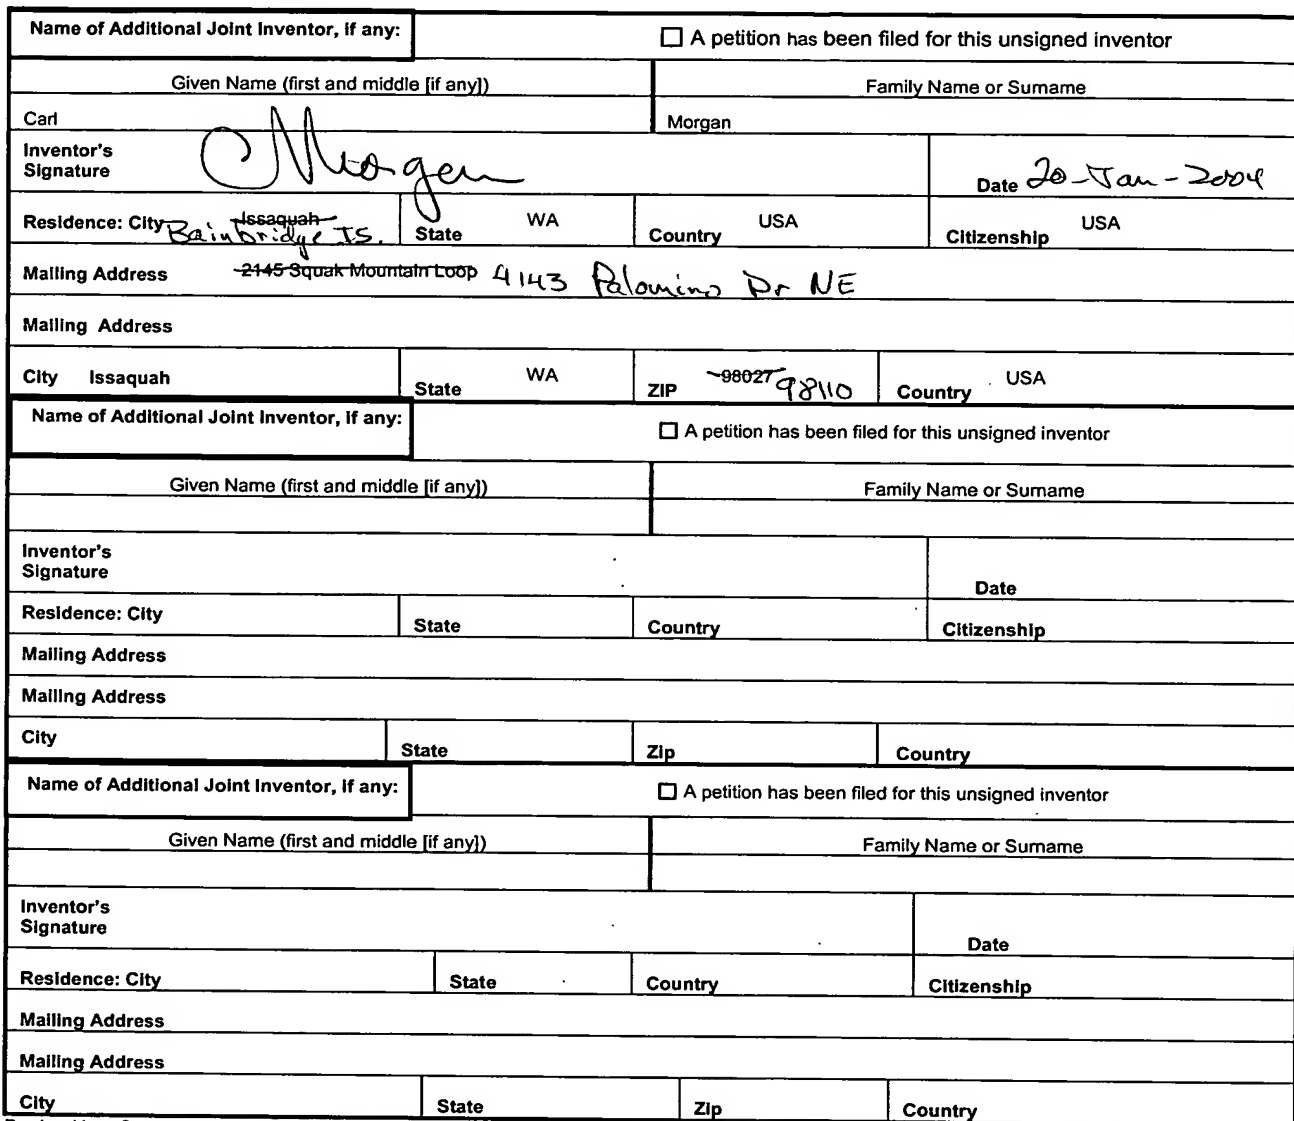 Name of Additional Joint Inventor, if any:
☐ A petition has been filed for this unsigned inventor
Given Name (first and middle [if any])
Family Name or Surname
Carl
Morgan
Inventor's
Signature
CMorgan
Date 20-Jan-2004
Residence: City Issaquah
Bainbridge IS.
State WA
Country USA
Citizenship USA
Mailing Address 2145 Squak Mountain Loop 4143 Palomino Dr NE
Mailing Address
City Issaquah
State WA
ZIP 98027 98110
Country USA
Name of Additional Joint Inventor, if any:
☐ A petition has been filed for this unsigned inventor
Given Name (first and middle [if any])
Family Name or Surname
Inventor's
Signature
Date
Residence: City
State
Country
Citizenship
Mailing Address
Mailing Address
City
State
Zip
Country
Name of Additional Joint Inventor, if any:
☐ A petition has been filed for this unsigned inventor
Given Name (first and middle [if any])
Family Name or Surname
Inventor's
Signature
Date
Residence: City
State
Country
Citizenship
Mailing Address
Mailing Address
City
State
Zip
Country